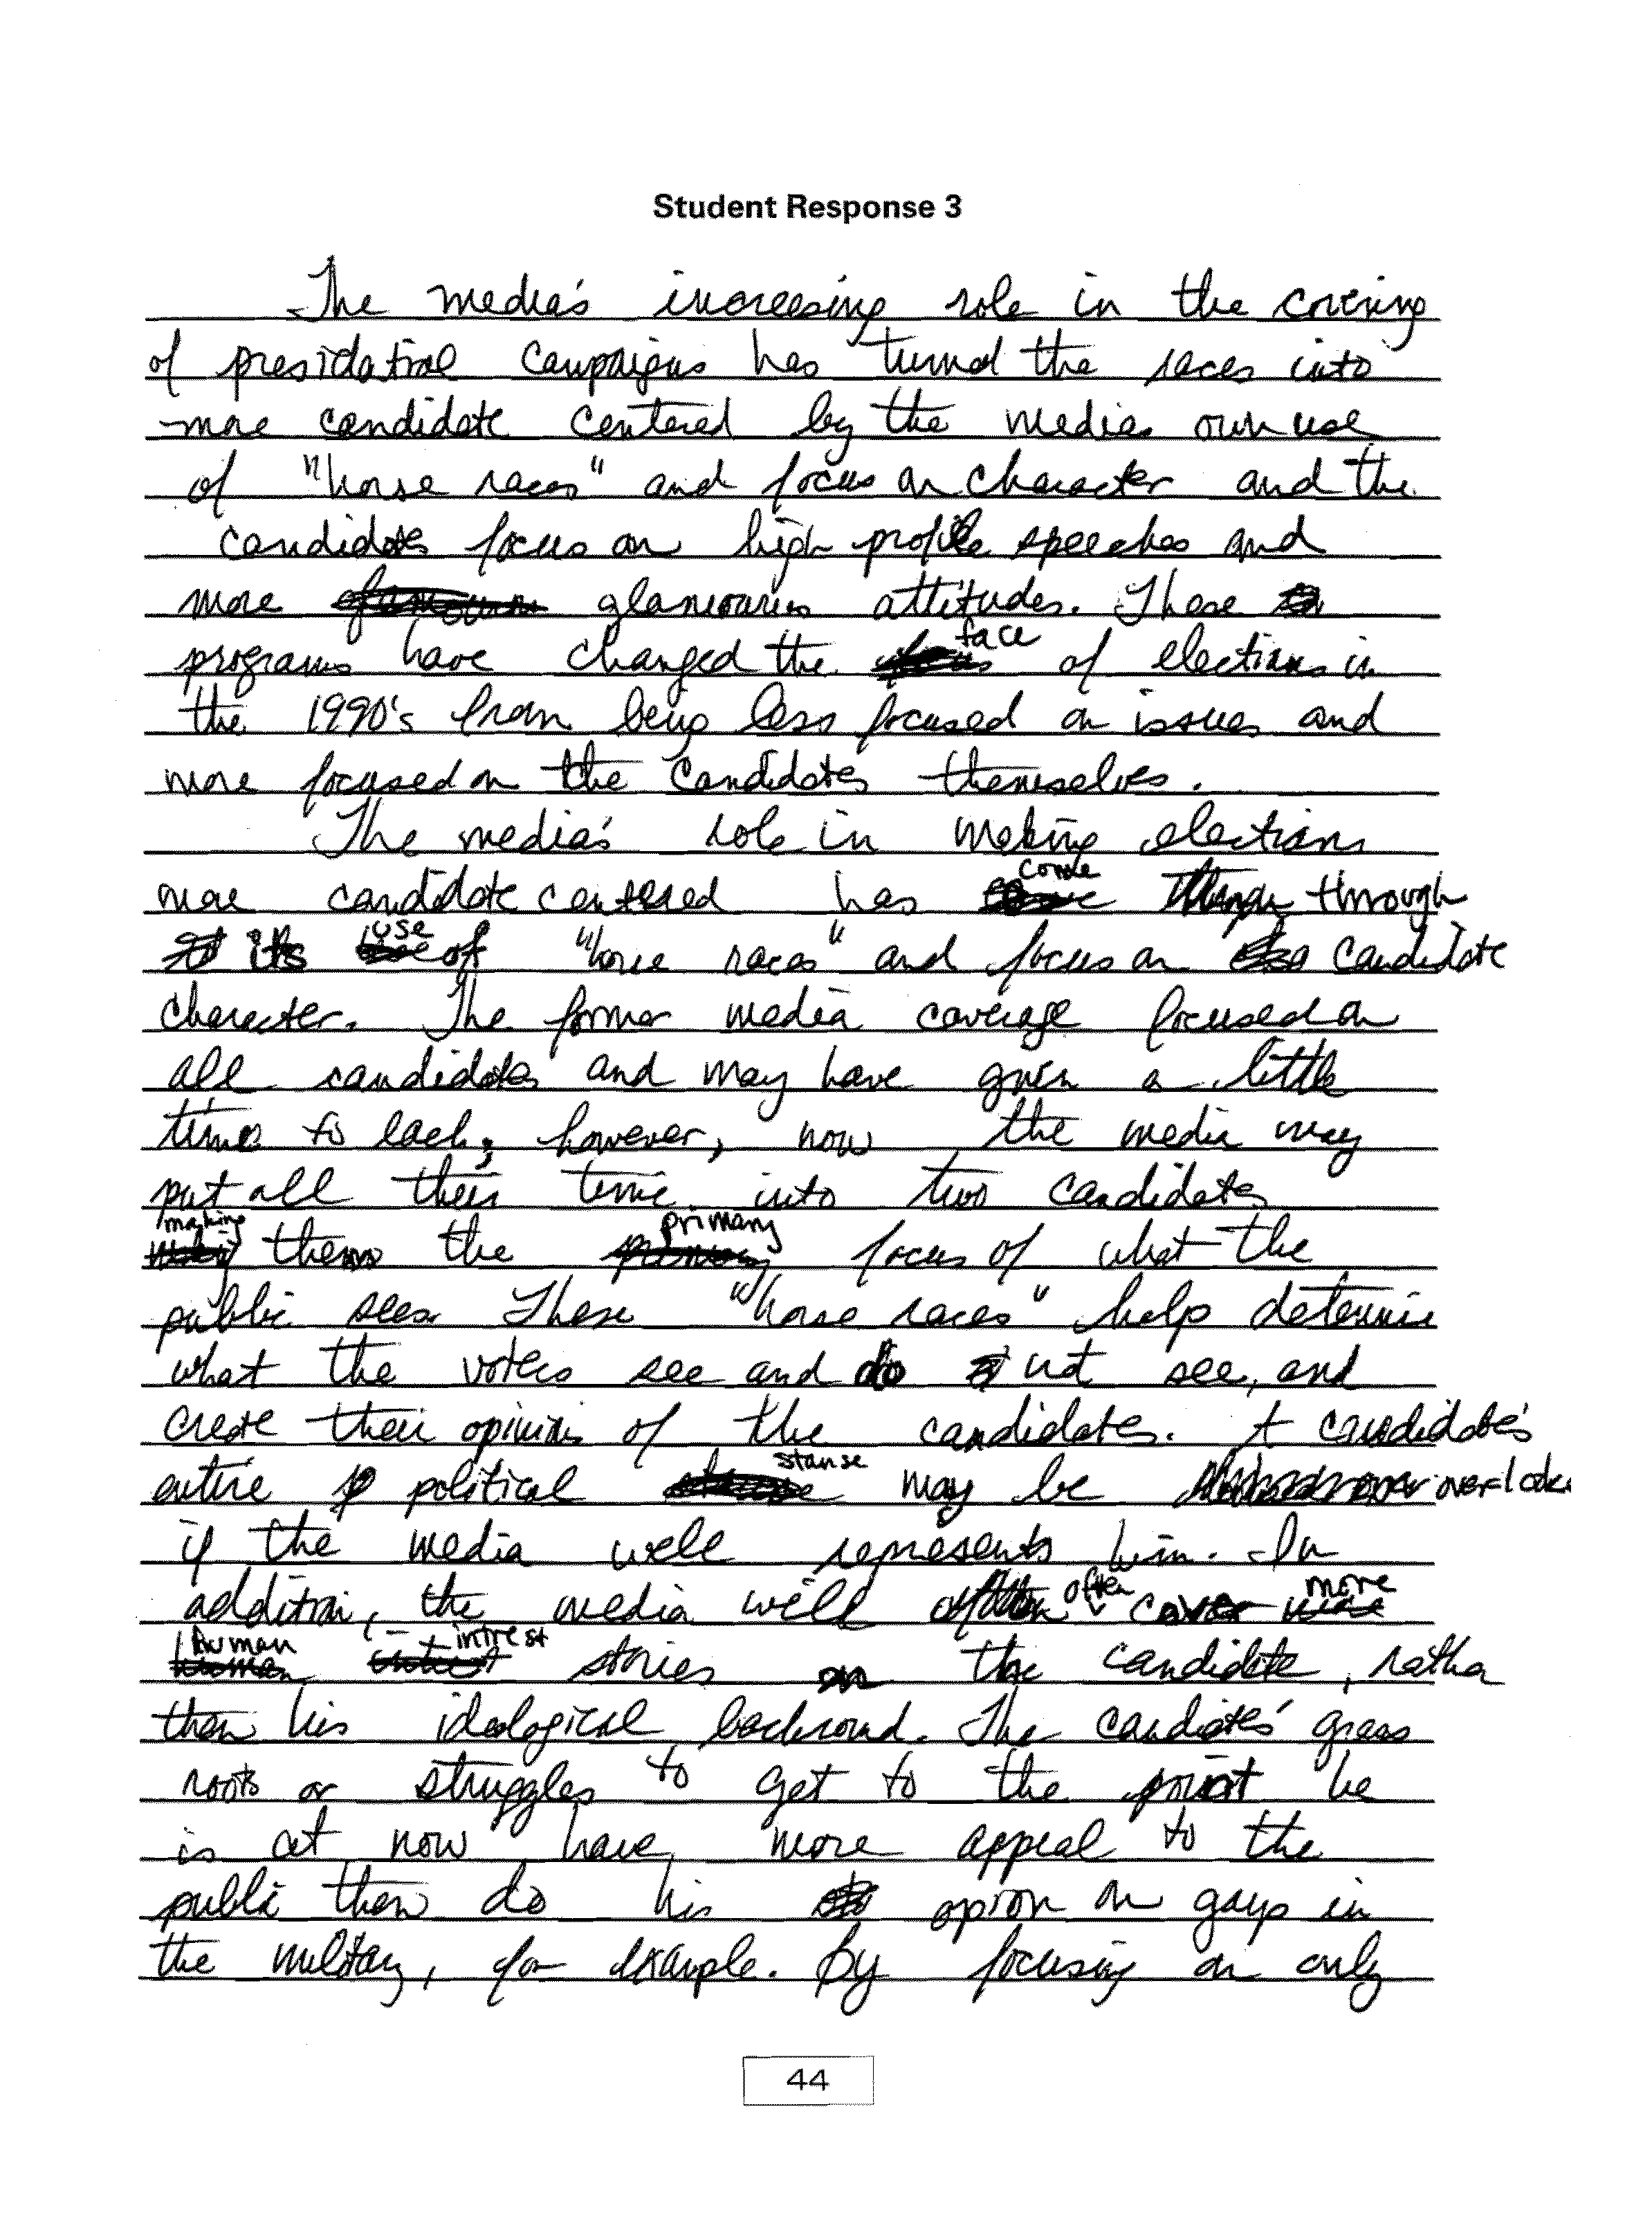 Student Response 3
The media's increesing role in the covering
of presidatial campaigns has turned the races into
more candidate centered by the medias own use
of "horse races" and focus on character and the
candidates focus on high profile speeches and
more glamourus attitudes. These
programs have changed the face of elections in
the 1990's from being less focused on issues and
more focused on the candidates themselves.
The media's role in making elections
more candidate centered has come through
its use of "horse races" and focus on candidate
character. The former media coverage focused on
all candidates and may have given a little
time to each; however, now the media may
put all their time into two candidates
making them the primary focus of what the
public sees. These "horse races" help determine
what the voters see and do not see, and
create their opinions of the candidates. A candidate's
entire political stanse may be overlooke
if the media well represents him. In
addition, the media will often cover more
human-intrest stories on the candidate, rather
then his ideological backround. The candiates' grass
roots or struggles to get to the point he
is at now have more appeal to the
public then do his opion on gays in
the military, for example. By focusing on only
44